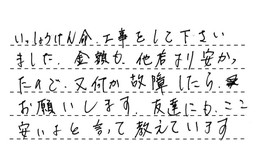 いっしょうけん命、工事をして下さい
ました。金額も、他者より安かっ
たので、又何か故障したら、
お願いします。友達にも、ここ
安いよと言って教えています